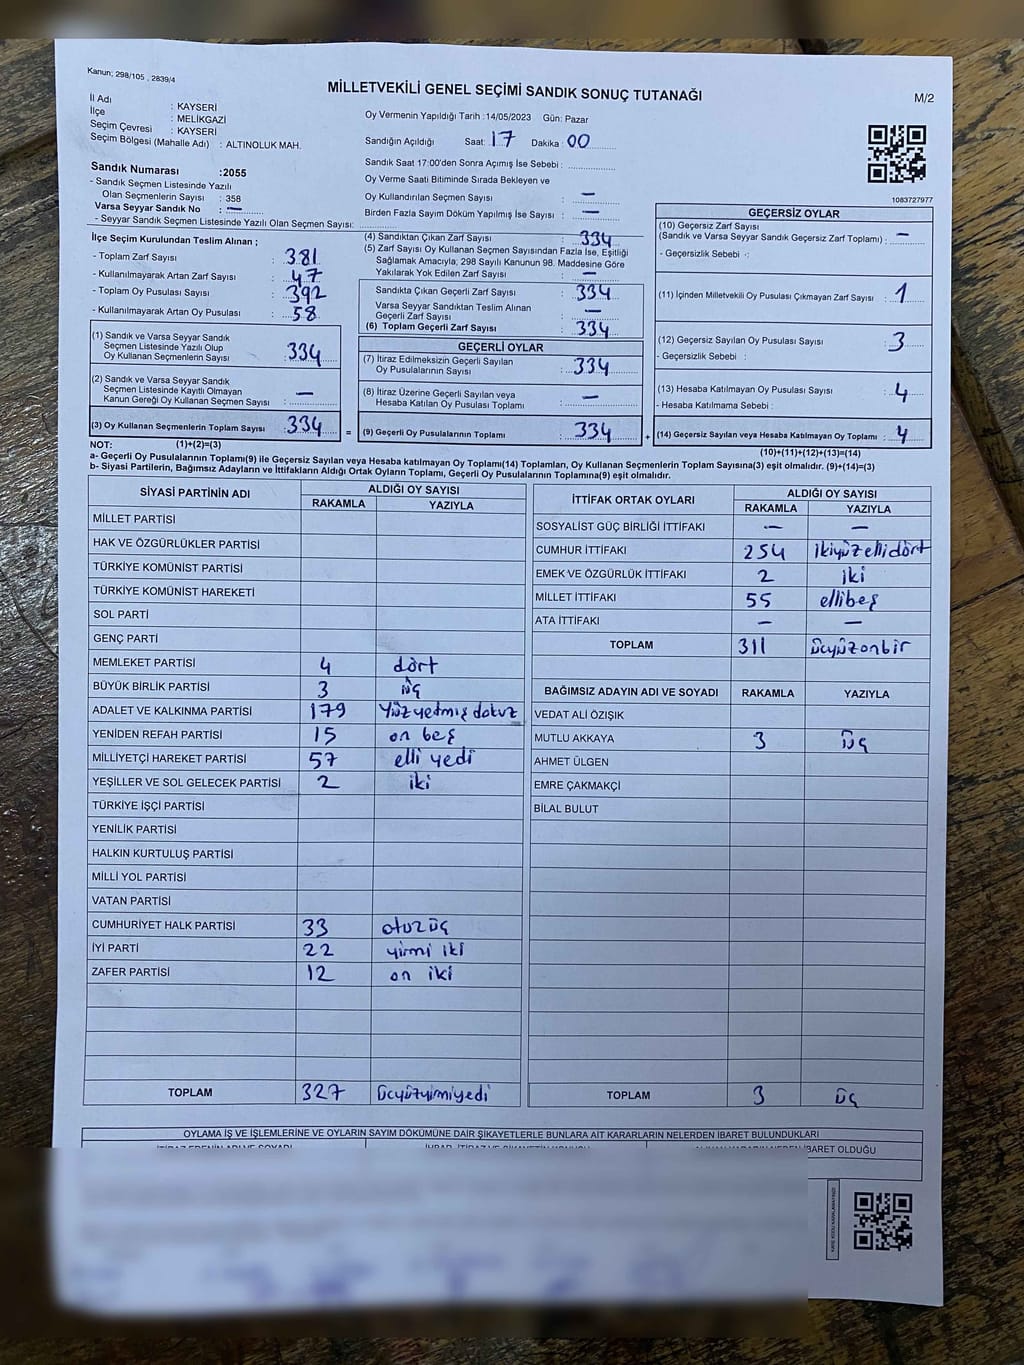 Kanun; 298/105 , 2839/4
MİLLETVEKİLİ GENEL SEÇİMİ SANDIK SONUÇ TUTANAĞI
M/2
İl Adı : KAYSERİ
İlçe : MELİKGAZİ
Seçim Çevresi : KAYSERİ
Seçim Bölgesi (Mahalle Adı) : ALTINOLUK MAH.
Oy Vermenin Yapıldığı Tarih :14/05/2023 Gün: Pazar
Sandığın Açıldığı Saat: 17 Dakika : 00
Sandık Saat 17:00'den Sonra Açılmış İse Sebebi :
Oy Verme Saati Bitiminde Sırada Bekleyen ve
Oy Kullandırılan Seçmen Sayısı : —
Birden Fazla Sayım Döküm Yapılmış İse Sayısı : —
1083727977
Sandık Numarası :2055
- Sandık Seçmen Listesinde Yazılı
Olan Seçmenlerin Sayısı : 358
Varsa Seyyar Sandık No : —
- Seyyar Sandık Seçmen Listesinde Yazılı Olan Seçmen Sayısı:
İlçe Seçim Kurulundan Teslim Alınan ;
- Toplam Zarf Sayısı : 381
- Kullanılmayarak Artan Zarf Sayısı : 47
- Toplam Oy Pusulası Sayısı : 392
- Kullanılmayarak Artan Oy Pusulası : 58
(1) Sandık ve Varsa Seyyar Sandık
Seçmen Listesinde Yazılı Olup
Oy Kullanan Seçmenlerin Sayısı : 334
(2) Sandık ve Varsa Seyyar Sandık
Seçmen Listesinde Kayıtlı Olmayan
Kanun Gereği Oy Kullanan Seçmen Sayısı : —
(3) Oy Kullanan Seçmenlerin Toplam Sayısı : 334
(4) Sandıktan Çıkan Zarf Sayısı : 334
(5) Zarf Sayısı Oy Kullanan Seçmen Sayısından Fazla İse, Eşitliği
Sağlamak Amacıyla, 298 Sayılı Kanunun 98. Maddesine Göre
Yakılarak Yok Edilen Zarf Sayısı : —
Sandıkta Çıkan Geçerli Zarf Sayısı : 334
Varsa Seyyar Sandıktan Teslim Alınan
Geçerli Zarf Sayısı : —
(6) Toplam Geçerli Zarf Sayısı : 334
GEÇERLİ OYLAR
(7) İtiraz Edilmeksizin Geçerli Sayılan
Oy Pusulalarının Sayısı : 334
(8) İtiraz Üzerine Geçerli Sayılan veya
Hesaba Katılan Oy Pusulası Toplamı : —
= (9) Geçerli Oy Pusulalarının Toplamı : 334
GEÇERSİZ OYLAR
(10) Geçersiz Zarf Sayısı
(Sandık ve Varsa Seyyar Sandık Geçersiz Zarf Toplamı) : —
- Geçersizlik Sebebi :
(11) İçinden Milletvekili Oy Pusulası Çıkmayan Zarf Sayısı : 1
(12) Geçersiz Sayılan Oy Pusulası Sayısı : 3
- Geçersizlik Sebebi :
(13) Hesaba Katılmayan Oy Pusulası Sayısı : 4
- Hesaba Katılmama Sebebi :
+ (14) Geçersiz Sayılan veya Hesaba Katılmayan Oy Toplamı : 4
NOT: (1)+(2)=(3)
(10)+(11)+(12)+(13)=(14)
a- Geçerli Oy Pusulalarının Toplamı(9) ile Geçersiz Sayılan veya Hesaba katılmayan Oy Toplamı(14) Toplamları, Oy Kullanan Seçmenlerin Toplam Sayısına(3) eşit olmalıdır. (9)+(14)=(3)
b- Siyasi Partilerin, Bağımsız Adayların ve İttifakların Aldığı Ortak Oyların Toplamı, Geçerli Oy Pusulalarının Toplamına(9) eşit olmalıdır.
SİYASİ PARTİNİN ADI ALDIĞI OY SAYISI
RAKAMLA YAZIYLA
MİLLET PARTİSİ
HAK VE ÖZGÜRLÜKLER PARTİSİ
TÜRKİYE KOMÜNİST PARTİSİ
TÜRKİYE KOMÜNİST HAREKETİ
SOL PARTİ
GENÇ PARTİ
MEMLEKET PARTİSİ 4 dört
BÜYÜK BİRLİK PARTİSİ 3 üç
ADALET VE KALKINMA PARTİSİ 179 Yüzyetmiş dokuz
YENİDEN REFAH PARTİSİ 15 on beş
MİLLİYETÇİ HAREKET PARTİSİ 57 elli yedi
YEŞİLLER VE SOL GELECEK PARTİSİ 2 iki
TÜRKİYE İŞÇİ PARTİSİ
YENİLİK PARTİSİ
HALKIN KURTULUŞ PARTİSİ
MİLLİ YOL PARTİSİ
VATAN PARTİSİ
CUMHURİYET HALK PARTİSİ 33 otuz üç
İYİ PARTİ 22 yirmi iki
ZAFER PARTİSİ 12 on iki
TOPLAM 327 üçyüzyirmiyedi
İTTİFAK ORTAK OYLARI ALDIĞI OY SAYISI
RAKAMLA YAZIYLA
SOSYALİST GÜÇ BİRLİĞİ İTTİFAKI — —
CUMHUR İTTİFAKI 254 ikiyüzellidört
EMEK VE ÖZGÜRLÜK İTTİFAKI 2 iki
MİLLET İTTİFAKI 55 ellibeş
ATA İTTİFAKI — —
TOPLAM 311 üçyüzonbir
BAĞIMSIZ ADAYIN ADI VE SOYADI RAKAMLA YAZIYLA
VEDAT ALİ ÖZIŞIK
MUTLU AKKAYA 3 üç
AHMET ÜLGEN
EMRE ÇAKMAKÇİ
BİLAL BULUT
TOPLAM 3 üç
OYLAMA İŞ VE İŞLEMLERİNE VE OYLARIN SAYIM DÖKÜMÜNE DAİR ŞİKAYETLERLE BUNLARA AİT KARARLARIN NELERDEN İBARET BULUNDUKLARI
İBARET OLDUĞU